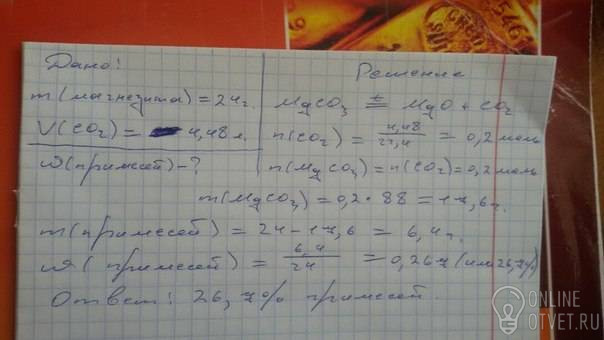 Дано:
m(магнезита) = 24г.
V(CO₂) = 4,48 л.
ω(примесей) - ?
Решение
MgCO₃ =(t) MgO + CO₂
n(CO₂) = 4,48/22,4 = 0,2 моль
n(MgCO₃) = n(CO₂) = 0,2 моль
m(MgCO₃) = 0,2 · 88 = 17,6 г.
m(примесей) = 24 - 17,6 = 6,4 г.
ω(примесей) = 6,4/24 = 0,267 (или 26,7%)
Ответ: 26,7% примесей.
ONLINE
OTVET.RU